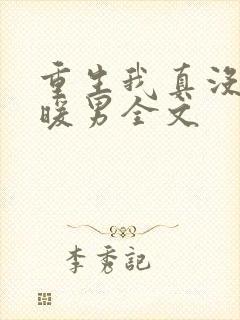 重生我真没
暖男全文
李秀记